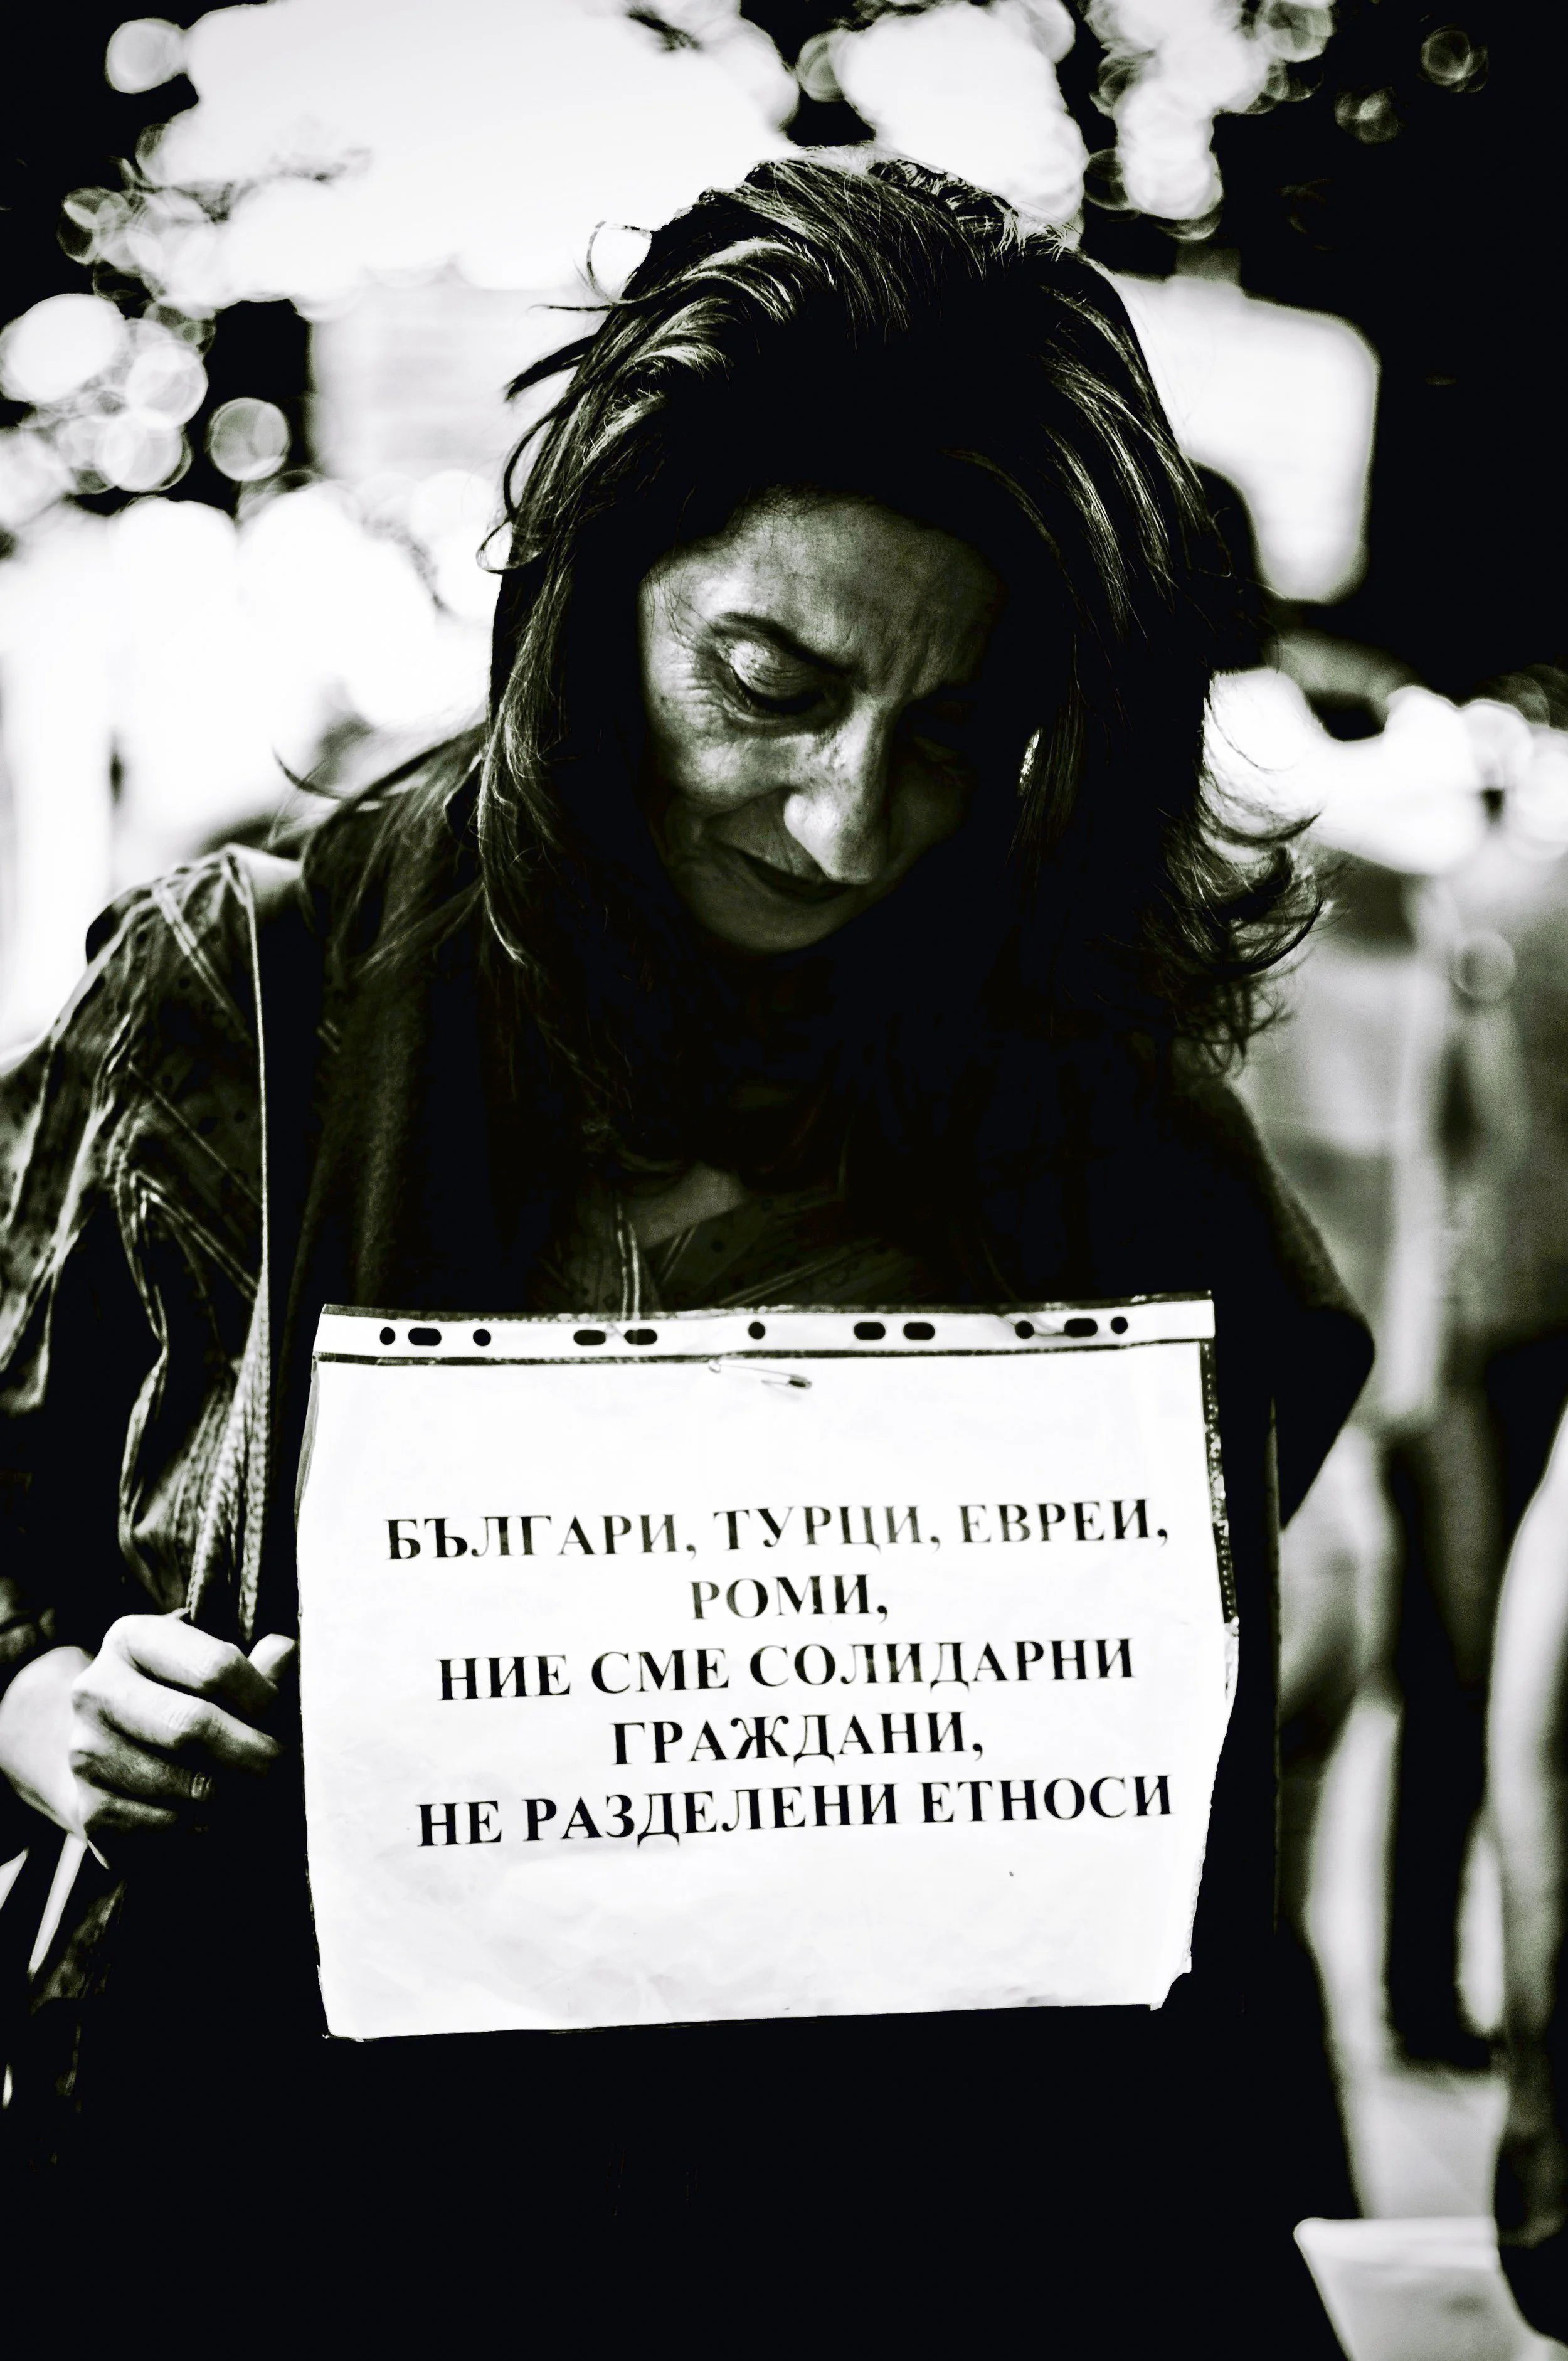 БЪЛГАРИ, ТУРЦИ, ЕВРЕИ,
РОМИ,
НИЕ СМЕ СОЛИДАРНИ
ГРАЖДАНИ,
НЕ РАЗДЕЛЕНИ ЕТНОСИ